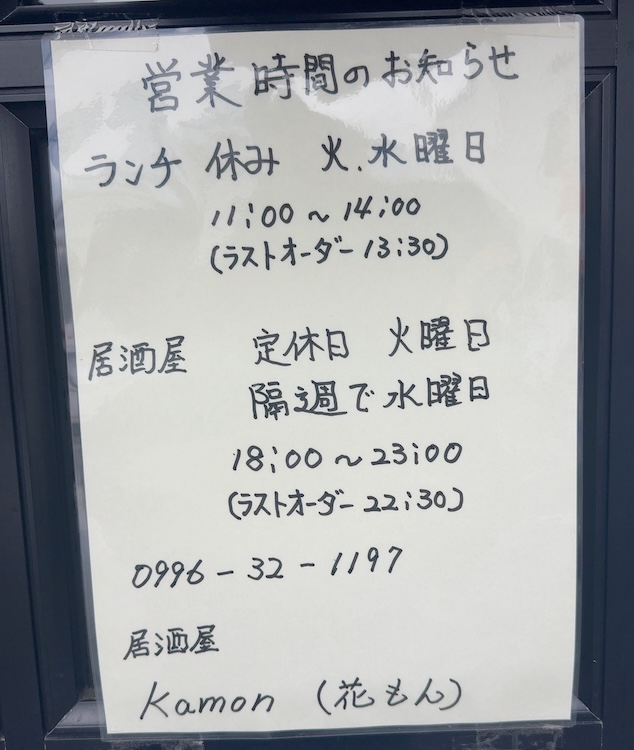 営業時間のお知らせ
ランチ 休み 火、水曜日
11:00～14:00
(ラストオーダー13:30)
居酒屋 定休日 火曜日
隔週で水曜日
18:00～23:00
(ラストオーダー22:30)
0996-32-1197
居酒屋
Kamon (花もん)